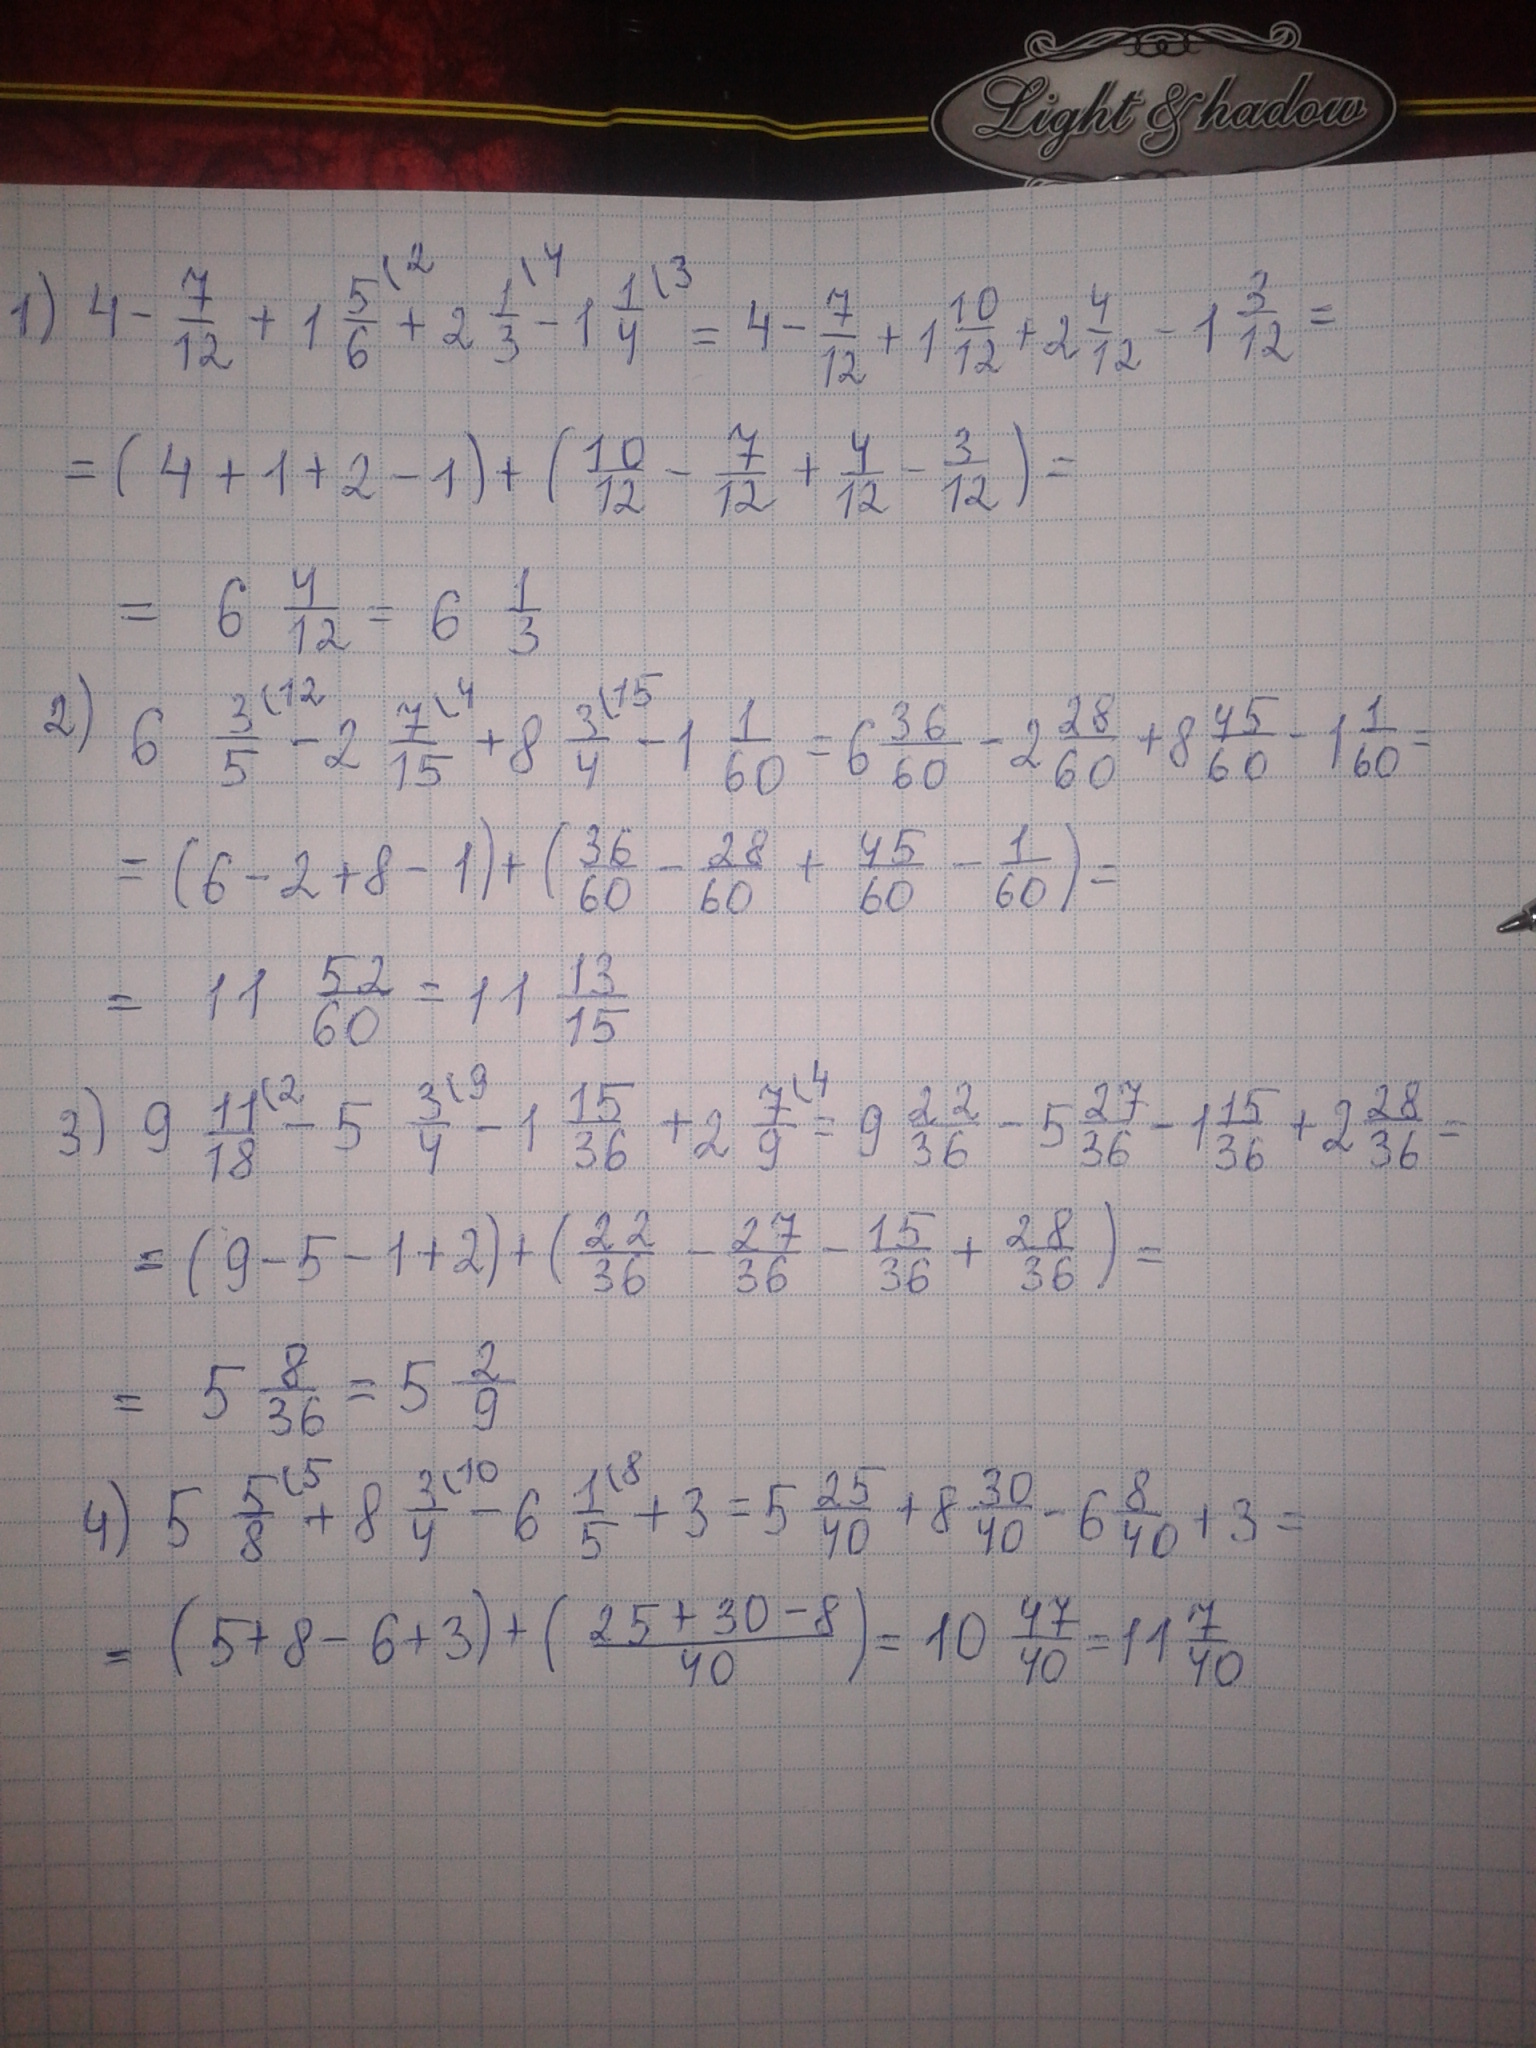 Light & Shadow
1) 4 - 7/12 + 1 5/6 \2 + 2 1/3 \4 - 1 1/4 \3 = 4 - 7/12 + 1 10/12 + 2 4/12 - 1 3/12 =
= (4 + 1 + 2 - 1) + (10/12 - 7/12 + 4/12 - 3/12) =
= 6 4/12 = 6 1/3
2) 6 3/5 \12 - 2 7/15 \4 + 8 3/4 \15 - 1 1/60 = 6 36/60 - 2 28/60 + 8 45/60 - 1 1/60 =
= (6 - 2 + 8 - 1) + (36/60 - 28/60 + 45/60 - 1/60) =
= 11 52/60 = 11 13/15
3) 9 11/18 \2 - 5 3/4 \9 - 1 15/36 + 2 7/9 \4 = 9 22/36 - 5 27/36 - 1 15/36 + 2 28/36 =
= (9 - 5 - 1 + 2) + (22/36 - 27/36 - 15/36 + 28/36) =
= 5 8/36 = 5 2/9
4) 5 5/8 \5 + 8 3/4 \10 - 6 1/5 \8 + 3 = 5 25/40 + 8 30/40 - 6 8/40 + 3 =
= (5 + 8 - 6 + 3) + ((25 + 30 - 8)/40) = 10 47/40 = 11 7/40